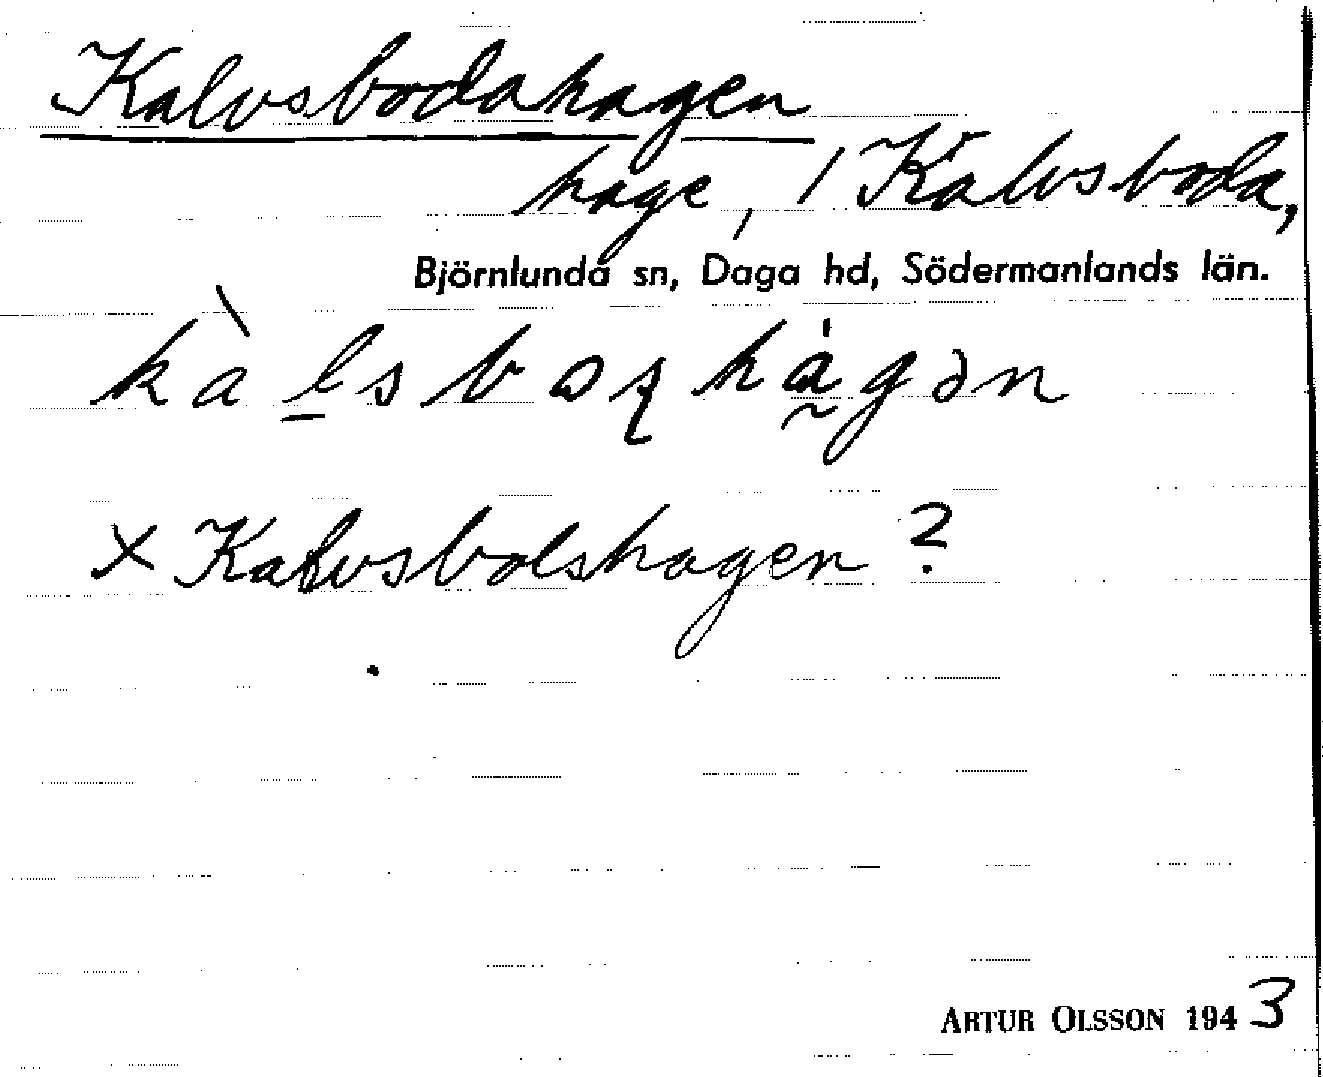 Kalvsbodahagen
hage, / Kalvsboda,
Björnlunda sn, Daga hd, Södermanlands län.
x Kalvsbolshagen ?
ARTUR OLSSON 1943